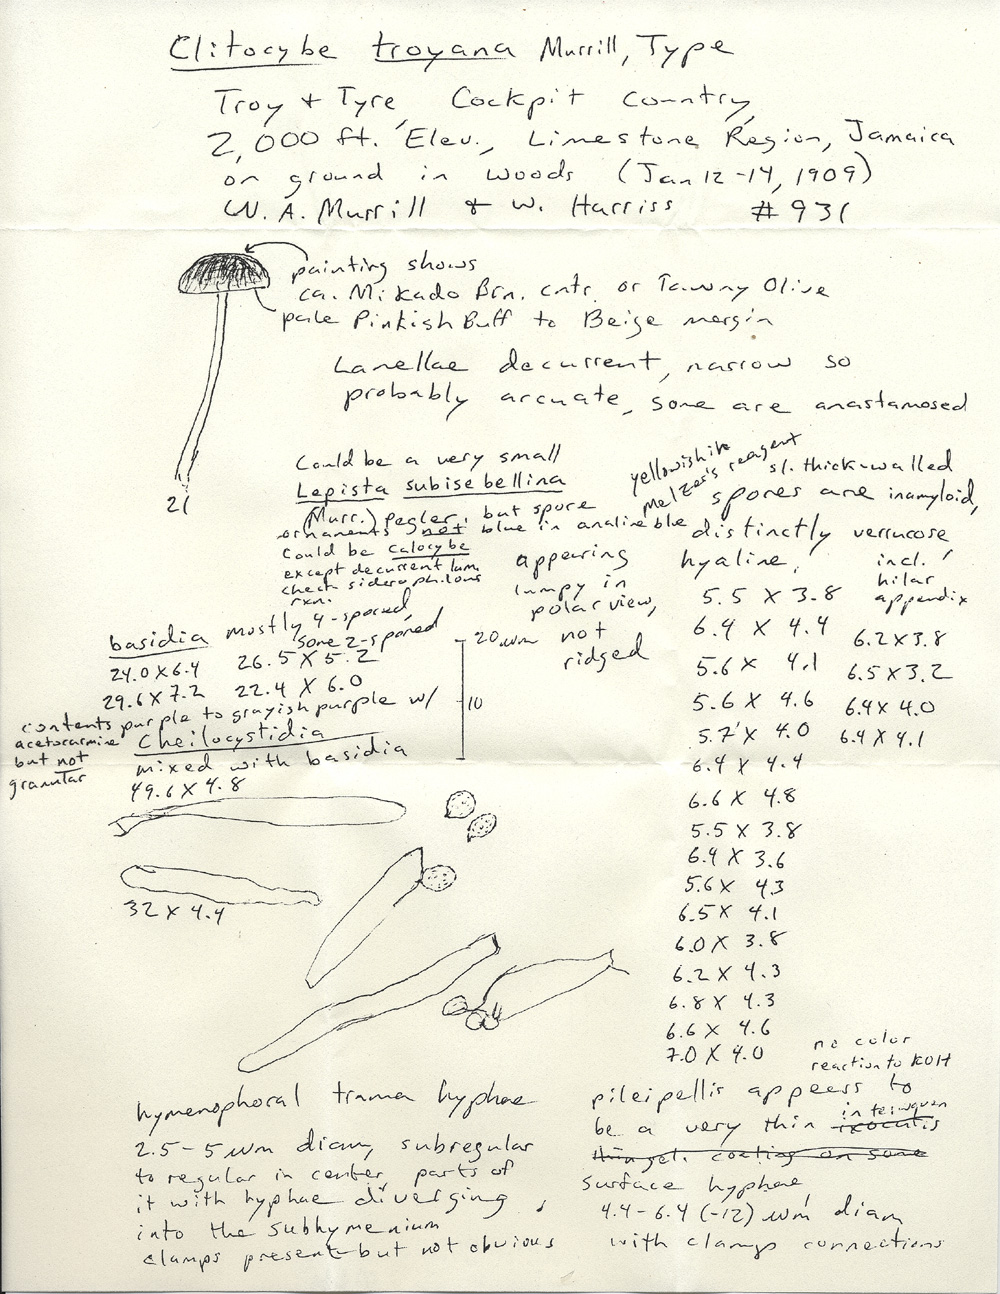 Clitocybe troyana Murrill, Type
Troy & Tyre, Cockpit Country,
2,000 ft. Elev., Limestone Region, Jamaica
on ground in woods (Jan 12-14, 1909)
W. A. Murrill & W. Harriss #931
painting shows
ca. Mikado Brn. cntr. or Tawny Olive
pale Pinkish Buff to Beige margin
Lamellae decurrent, narrow so
probably arcuate, some are anastamosed
21
Could be a very small
Lepista subisabellina
(Murr.) Pegler, but spore
ornaments not blue in analine blue
Could be Calocybe
except decurrent lam.
check siderophilous
rxn.
yellowish in
Melzer's reagent
sl. thick-walled
spores are inamyloid,
distinctly verrucose
hyaline,
incl.
hilar
appendix
appearing
lumpy in
polar view,
not
ridged
5.5 X 3.8
6.4 X 4.4
5.6 X 4.1
5.6 X 4.6
5.7 X 4.0
6.4 X 4.4
6.6 X 4.8
5.5 X 3.8
6.4 X 3.6
5.6 X 4.3
6.5 X 4.1
6.0 X 3.8
6.2 X 4.3
6.8 X 4.3
6.6 X 4.6
7.0 X 4.0
6.2 X 3.8
6.5 X 3.2
6.4 X 4.0
6.4 X 4.1
basidia mostly 4-spored,
some 2-spored
24.0 X 6.4 26.5 X 5.2
29.6 X 7.2 22.4 X 6.0
contents purple to grayish purple w/
acetocarmine
but not
granular
20 um
10
Cheilocystidia
mixed with basidia
49.6 X 4.8
32 X 4.4
no color
reaction to KOH
hymenophoral trama hyphae
2.5-5 um diam, subregular
to regular in center, parts of
it with hyphae diverging
into the subhymenium
clamps present but not obvious
pileipellis appeers to
be a very thin ixocutis
thin gel. coating on some
surface hyphae,
4.4-6.4 (-12) um diam
with clamp connections